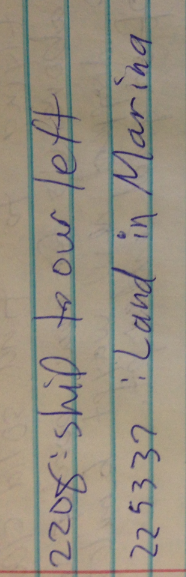 2208: ship to our left
225337: Land in Marina